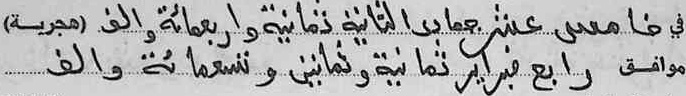 في خامس عشر جمادى الثانية ثمانية واربعمائة والف (هجرية)
موافق رابع فبراير ثمانية وثمانين وتسعمائة والف